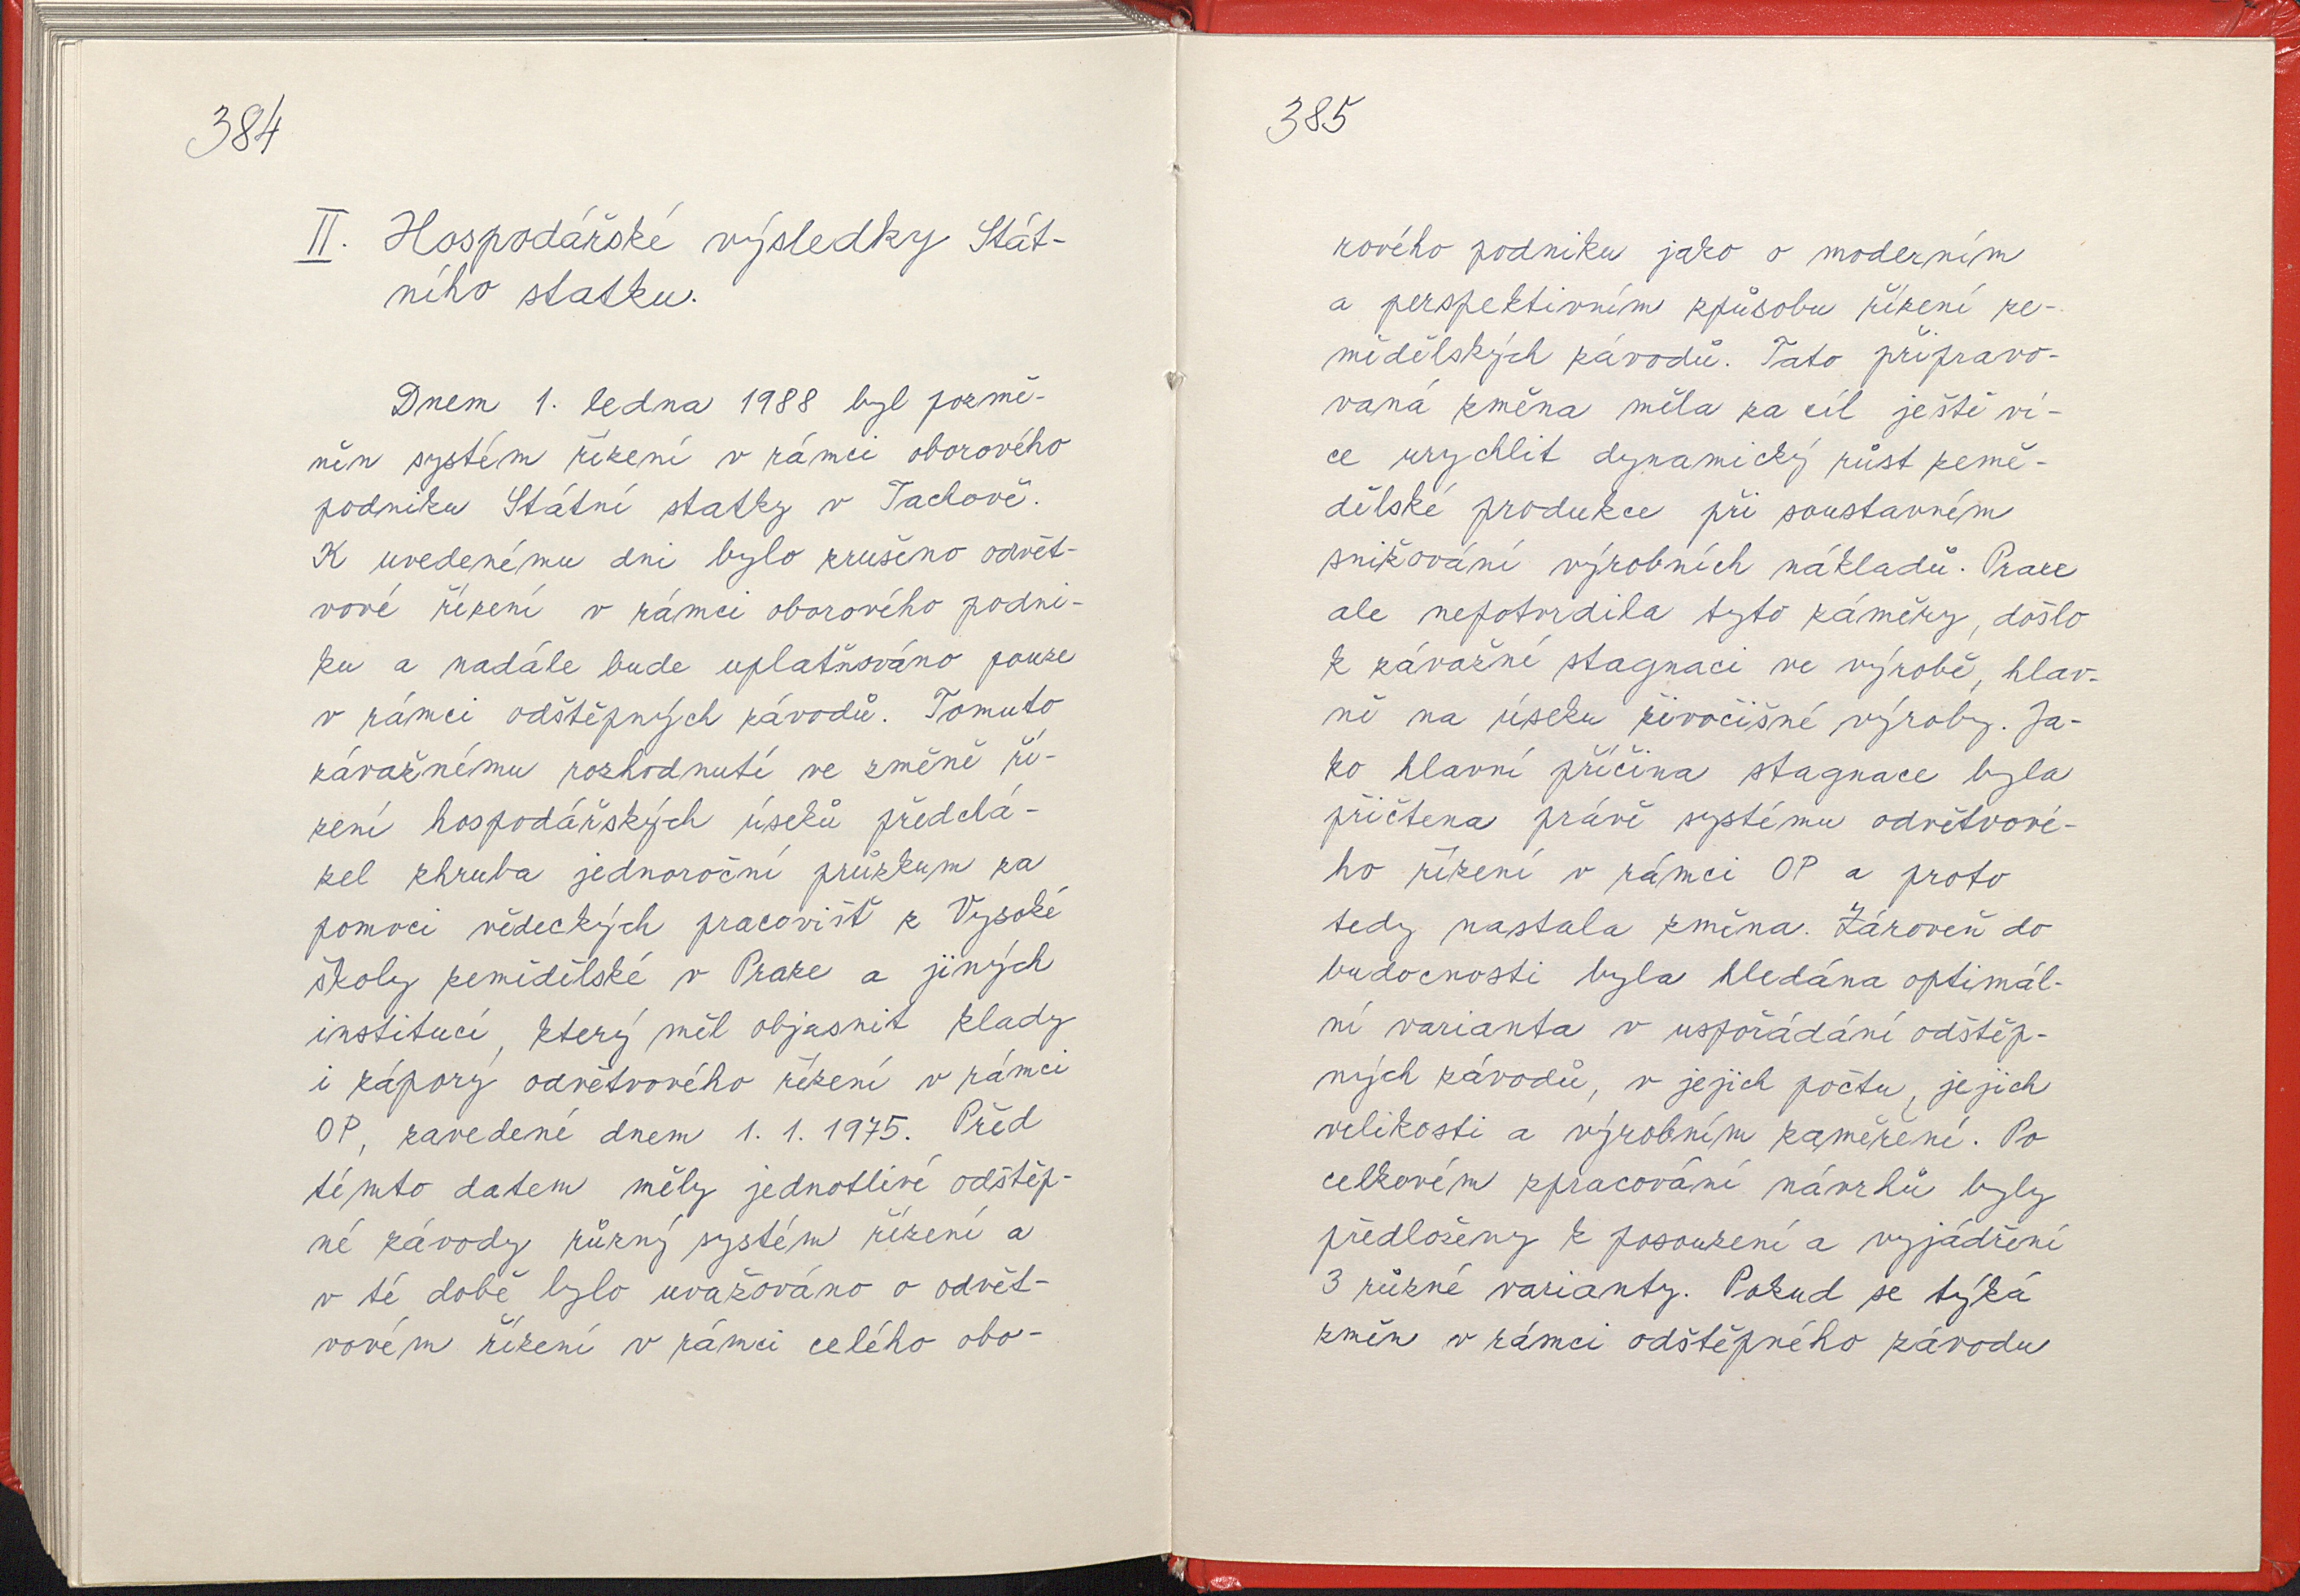 384
II. Hospodářské výsledky Stát-
ního statku.
Dnem 1. ledna 1988 byl pozmě-
něn systém řízení v rámci oborového
podniku Státní statky v Tachově.
K uvedenému dni bylo zrušeno odvět-
vové řízení v rámci oborového podni-
ku a nadále bude uplatňováno pouze
v rámci odštěpných závodů. Tomuto
závažnému rozhodnutí ve změně ří-
zení hospodářských úseků předchá-
zel zhruba jednoroční průzkum za
pomoci vědeckých pracovišť z Vysoké
školy zemědělské v Praze a jiných
institucí, který měl objasnit klady
i zápory odvětvového řízení v rámci
OP, zavedené dnem 1. 1. 1975. Před
tímto datem měly jednotlivé odštěp-
né závody různý systém řízení a
v té době bylo uvažováno o odvět-
vovém řízení v rámci celého obo-
385
rového podniku jako o moderním
a perspektivním způsobu řízení ze-
mědělských závodů. Tato připravo-
vaná změna měla za cíl ještě ví-
ce urychlit dynamický růst země-
dělské produkce při soustavném
snižování výrobních nákladů. Praxe
ale nepotvrdila tyto záměry, došlo
k závažné stagnaci ve výrobě, hlav-
ně na úseku živočišné výroby. Ja-
ko hlavní příčina stagnace byla
přičtena právě systému odvětvové-
ho řízení v rámci OP a proto
tedy nastala změna. Zároveň do
budocnosti byla hledána optimál-
ní varianta v uspořádání odštěp-
ných závodů, v jejich počtu, jejich
velikosti a výrobním zaměření. Po
celkovém zpracování návrhů byly
předloženy k posouzení a vyjádření
3 různé varianty. Pokud se týká
změn v rámci odštěpného závodu